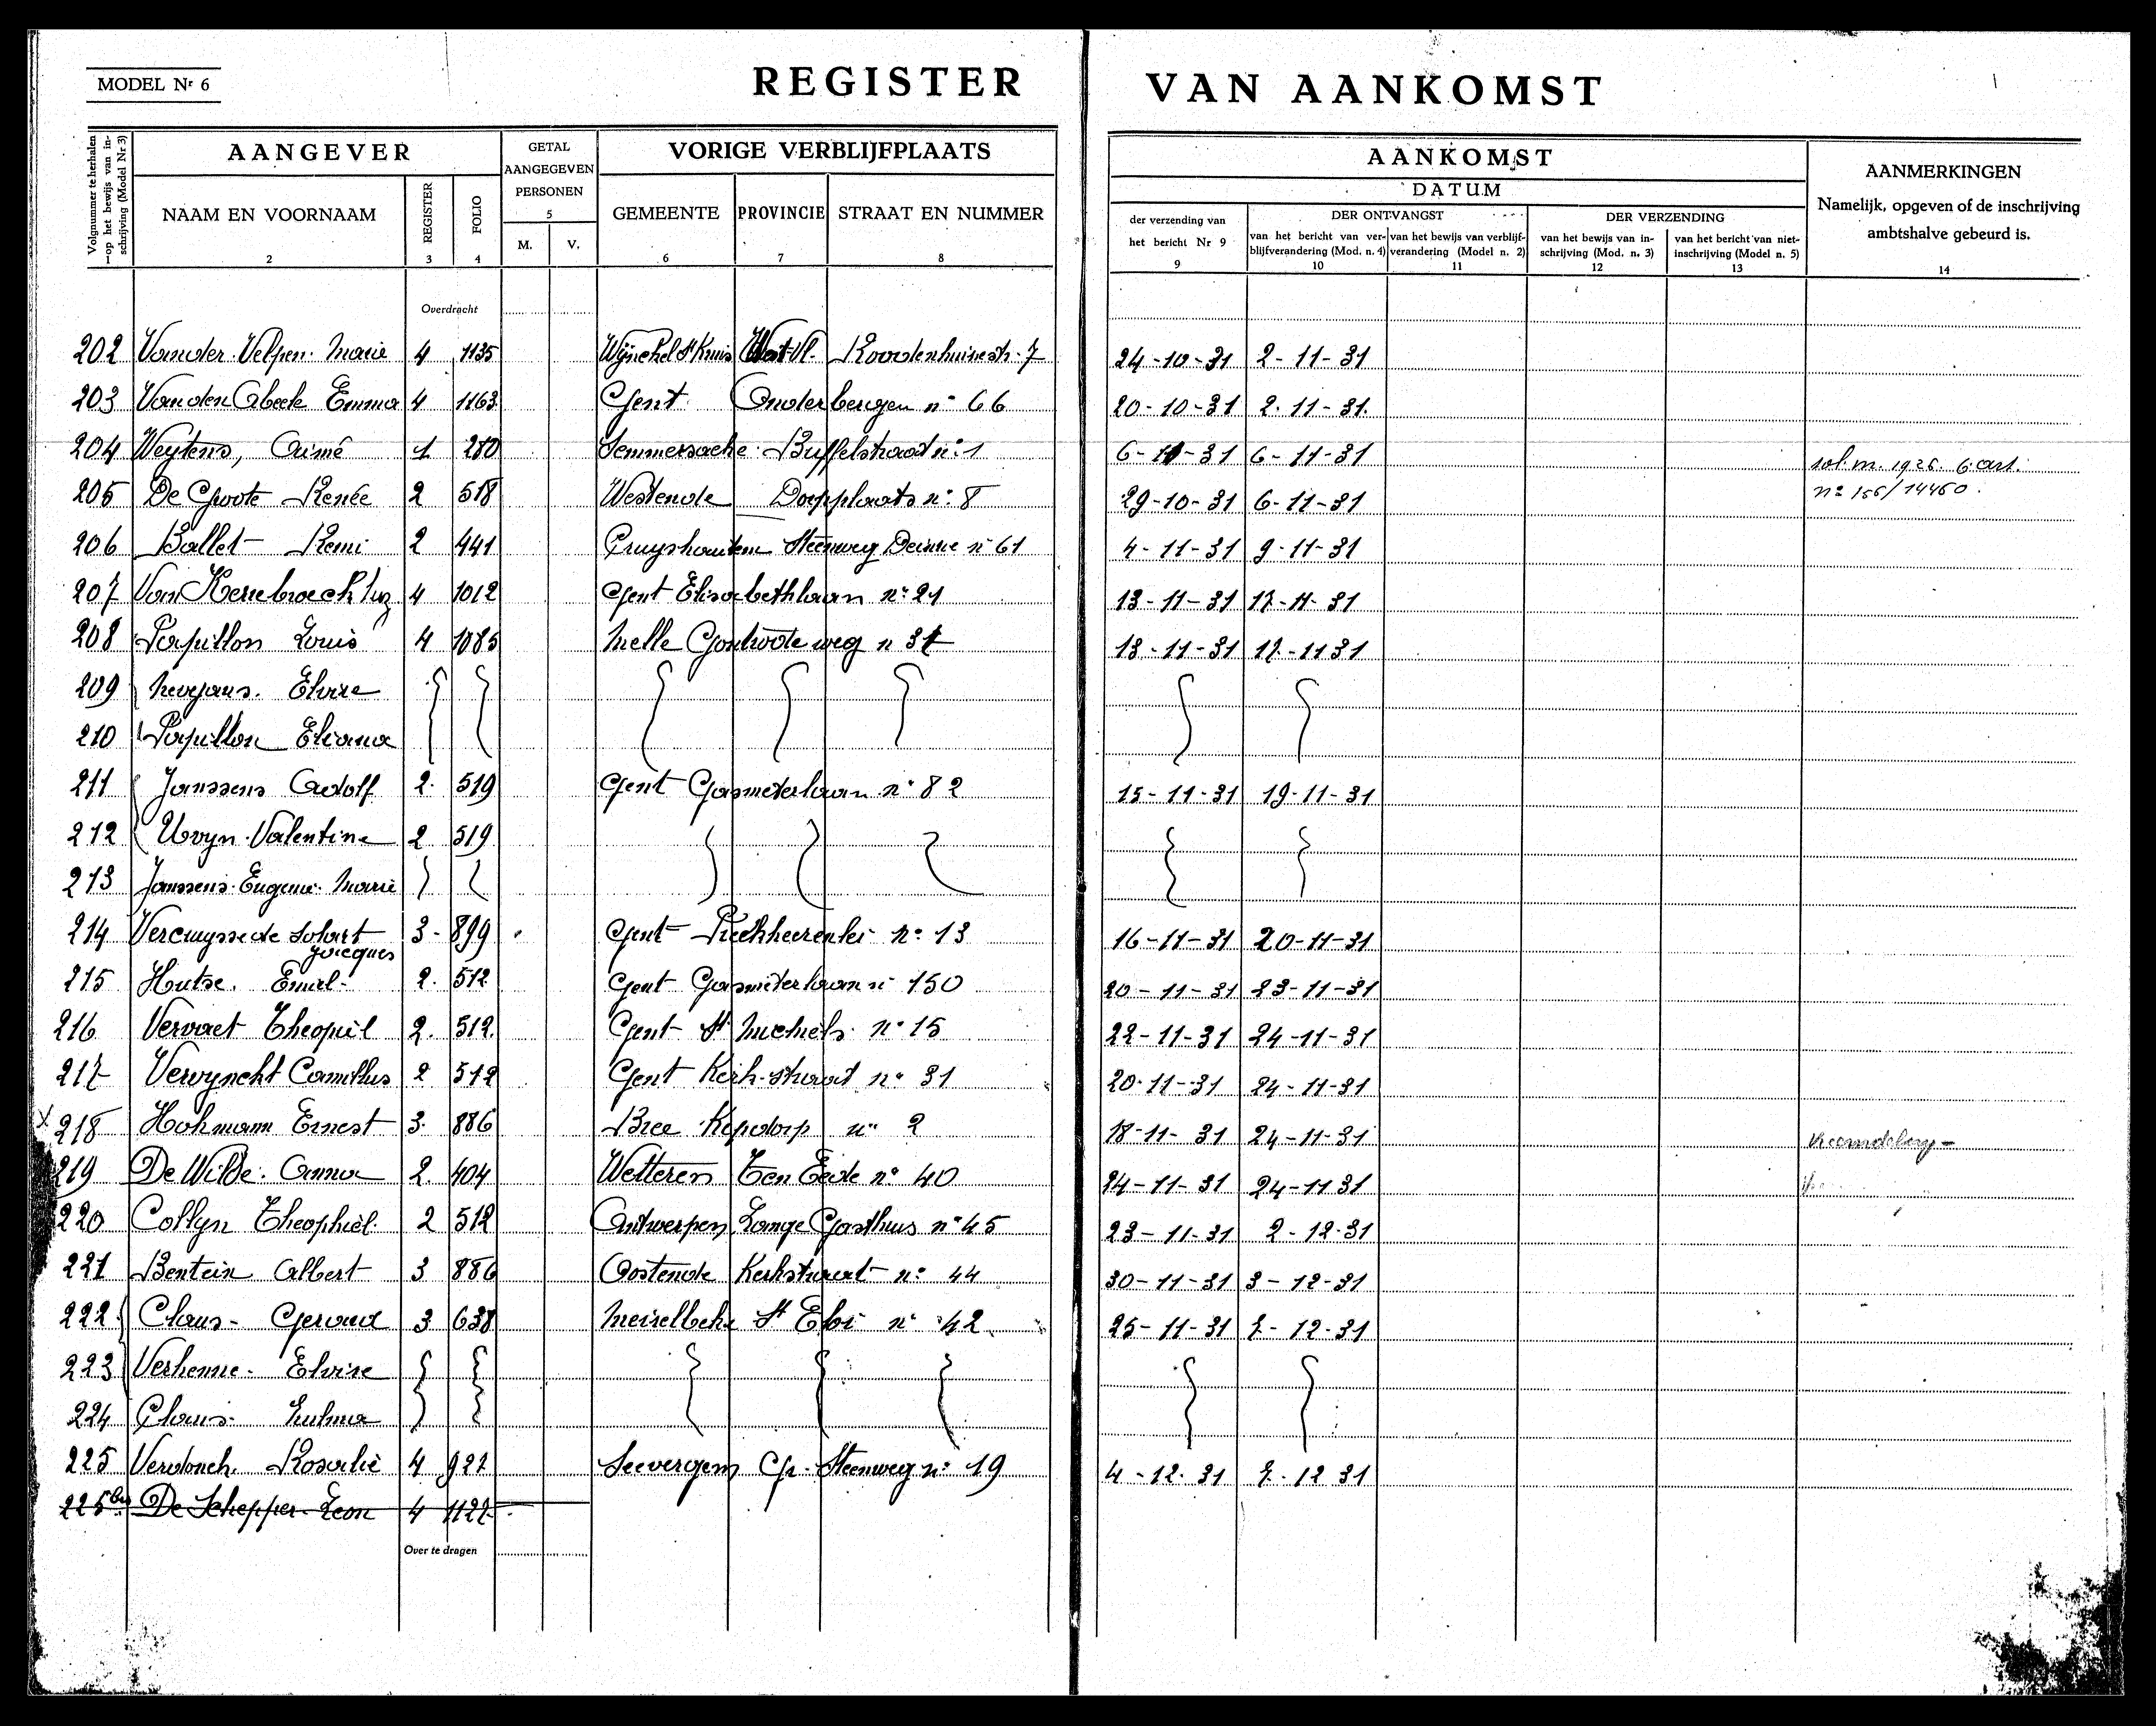 MODEL Nr 6
REGISTER VAN AANKOMST
Volgnummer te herhalen op het bewijs van inschrijving (Model Nr 3)
AANGEVER
NAAM EN VOORNAAM
2
REGISTER
3
FOLIO
4
GETAL AANGEGEVEN PERSONEN
5
M. V.
VORIGE VERBLIJFPLAATS
GEMEENTE
6
PROVINCIE
7
STRAAT EN NUMMER
8
AANKOMST
DATUM
der verzending van het bericht Nr 9
9
DER ONTVANGST
van het bericht van verblijfverandering (Mod. n. 4)
10
van het bewijs van verblijfverandering (Model n. 2)
11
DER VERZENDING
van het bewijs van inschrijving (Mod. n. 3)
12
van het bericht van niet-inschrijving (Model n. 5)
13
AANMERKINGEN
Namelijk, opgeven of de inschrijving ambtshalve gebeurd is.
14
Overdracht
202 Vander Velpen Marie 4 1135 West-Vl. 7 24-10-31 2-11-31
203 Van den Abeele Emma 4 1163 Gent Onderbergen n° 66 20-10-31 2-11-31
204 Weytens, Aimé 1 280 Semmersake Buffelstraat n° 1 6-11-31 6-11-31 sol. m. 1926
205 De Groote Renée 2 518 Westende Dorpplaats n° 8 29-10-31 6-11-31 n° 156/14460
206 Ballet Remi 2 441 Cruyshautem Steenweg Deinze n° 61 4-11-31 9-11-31
207 Van Kerrebroeck 4 1012 Gent Elisabethlaan n° 21 13-11-31 17-11-31
208 Papillon Louis 4 1085 Melle Gontrode weg n 37 13-11-31 17-11 31
209 Nevejans Elvire
210 Papillon Eliana
211 Janssens Adolf 2 519 Gent Gasmeterlaan n° 82 15-11-31 19-11-31
212 Uvyn Valentine 2 519
213 Janssens Eugenie Marie
214 Vercruysse de Solart Jacques 3 899 Gent Predikheerenlei n° 13 16-11-31 20-11-31
215 Hutse Emiel 2 512 Gent Gasmeterlaan n° 150 20-11-31 23-11-31
216 Vervaet Theophiel 2 512 Gent St Michiels n° 15 22-11-31 24-11-31
217 Verwyncht Camillus 2 512 Gent Kerkstraat n° 31 20-11-31 24-11-31
x 218 Hohmann Ernest 3 886 Bree n° 2 18-11-31 24-11-31
219 De Wilde Anna 2 404 Wetteren Ten Eede n° 40 24-11-31 24-11 31
220 Collyn Theophiel 2 512 Antwerpen Lange Gasthuis n° 45 23-11-31 2-12-31
221 Bentein Albert 3 886 Oostende Kerkstraat n° 44 30-11-31 3-12-31
222 Claus Gerard 3 638 Meirelbeke St Eloi n° 42 25-11-31 7-12-31
223 Verhenne Elvire
224 Claus Zulma
225 Verdonck Rosalie 4 927 Seevergem Gr. Steenweg n° 19 4-12-31 7-12 31
225bis De Schepper Leon 4 1127
Over te dragen